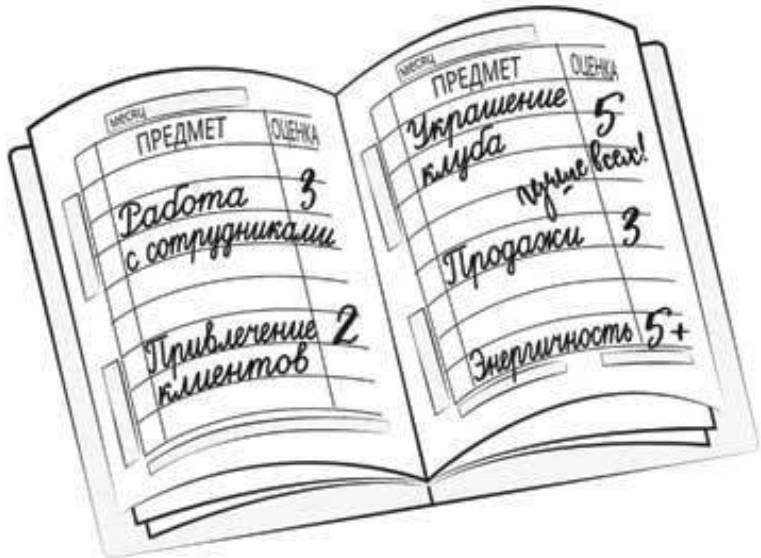 месяц
ПРЕДМЕТ ОЦЕНКА
Работа 3
с сотрудниками
Привлечение 2
клиентов
месяц
ПРЕДМЕТ ОЦЕНКА
Украшение 5
клуба
лучше всех!
Продажи 3
Энергичность 5+